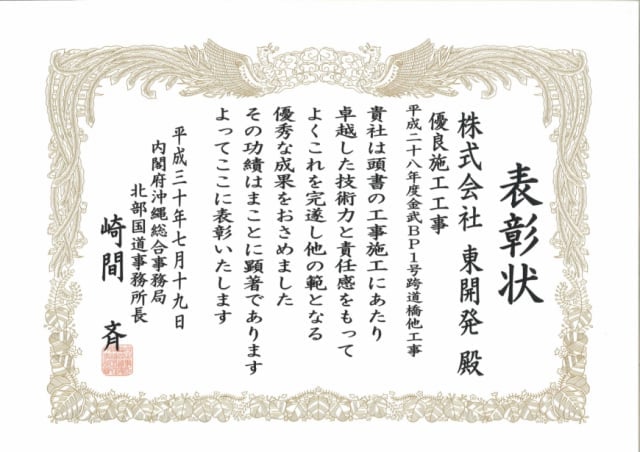 表彰状
株式会社 東開発 殿
優良施工工事
平成二十八年度金武BP1号跨道橋他工事
貴社は頭書の工事施工にあたり
卓越した技術力と責任感をもって
よくこれを完遂し他の範となる
優秀な成果をおさめました
その功績はまことに顕著であります
よってここに表彰いたします
平成三十年七月十九日
内閣府沖縄総合事務局
北部国道事務所長
崎間 斉